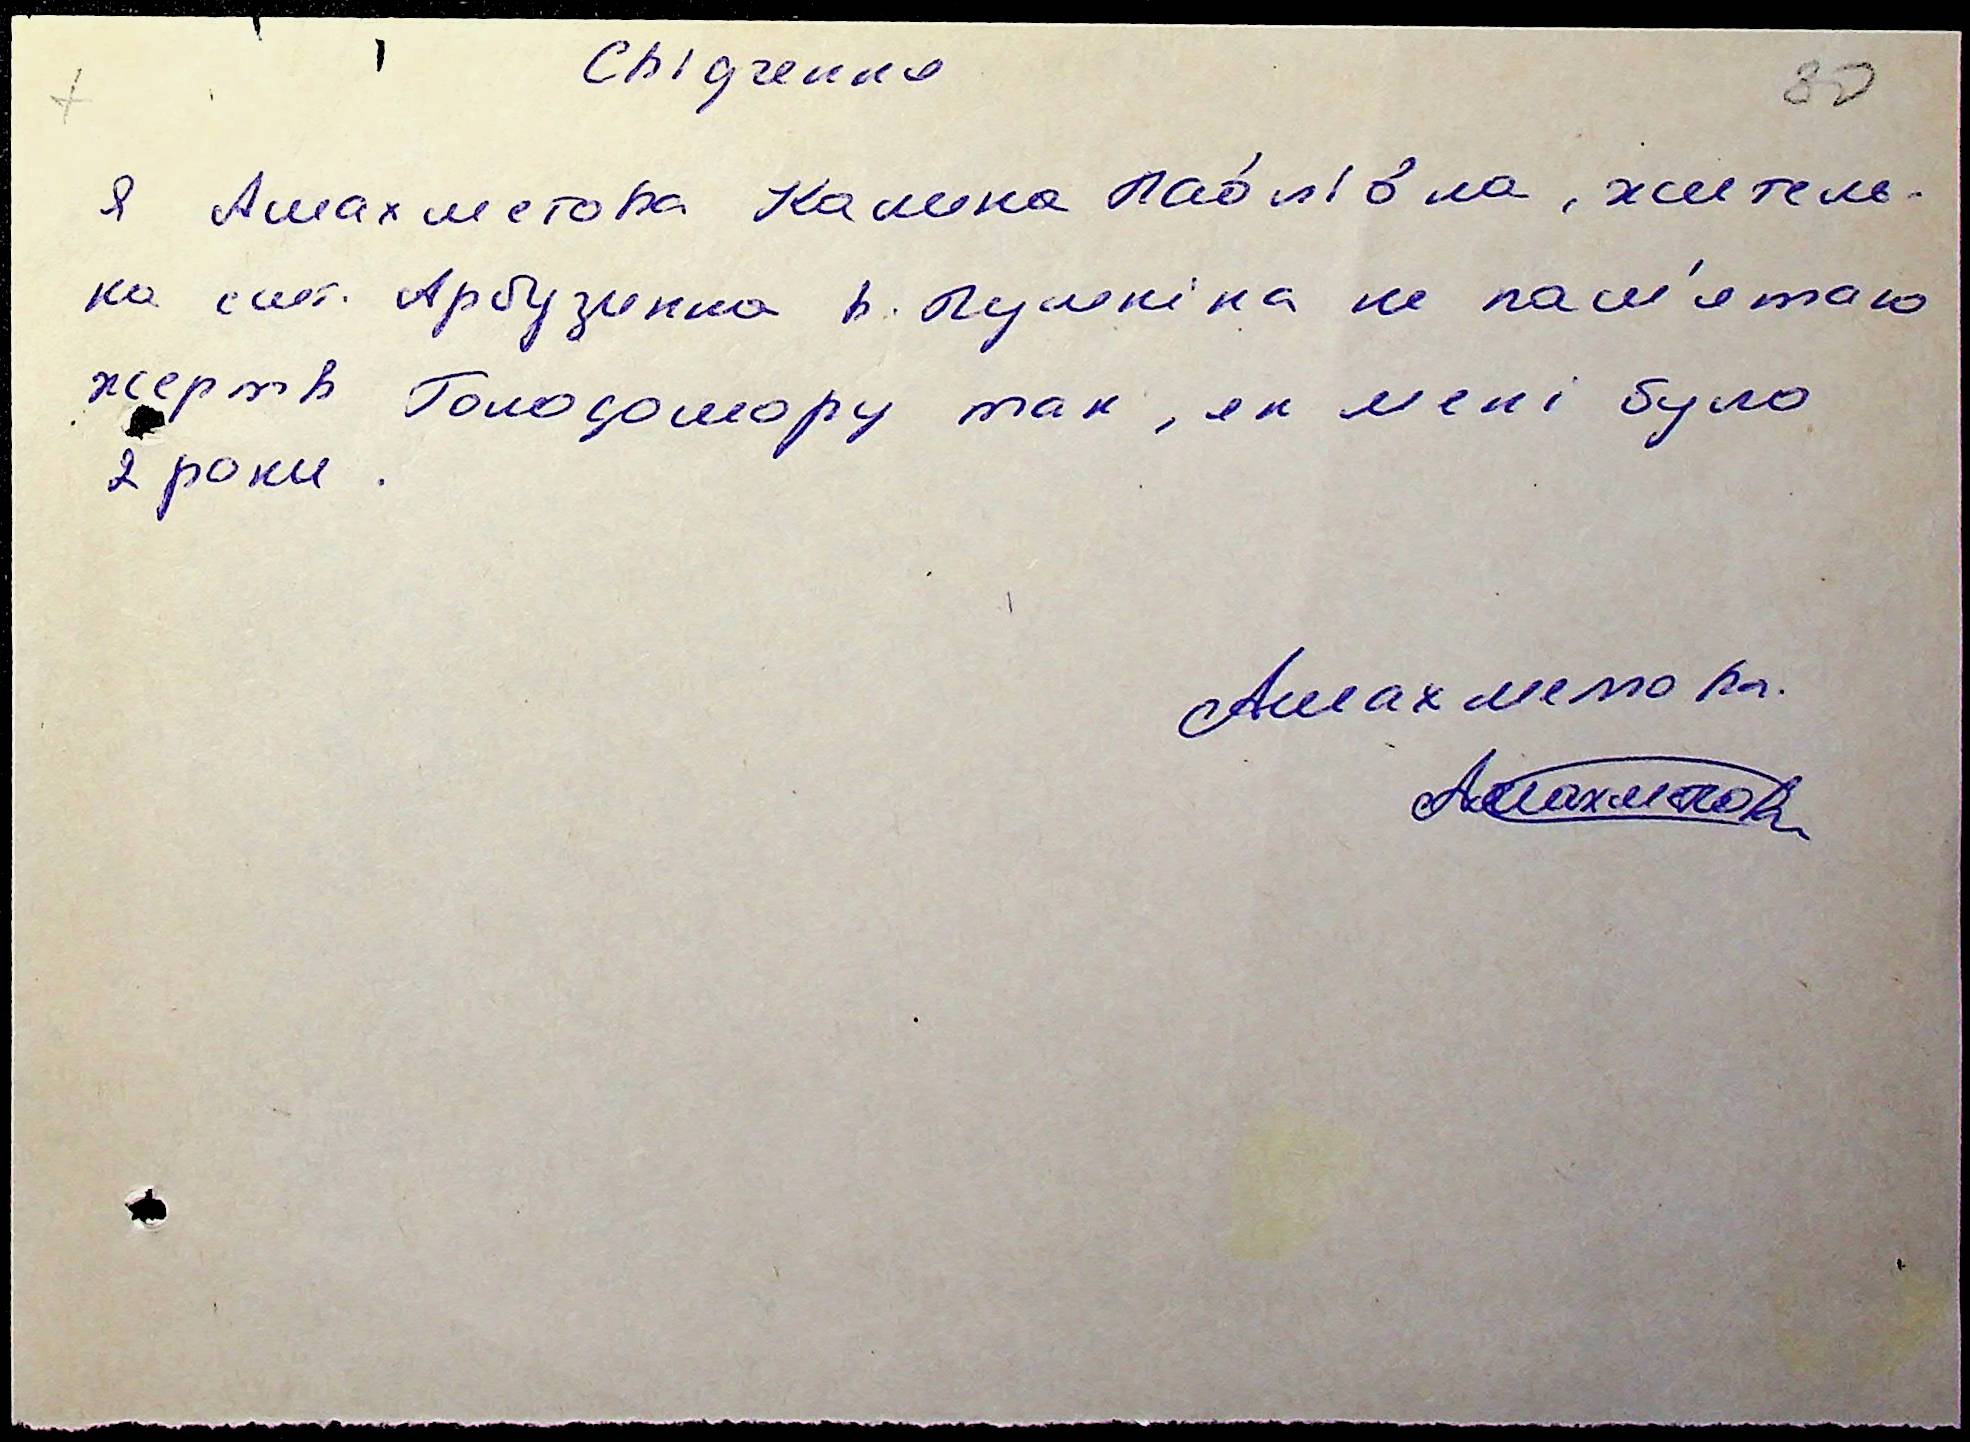 Свідчення
80
Я Амахметова Калина Павлівна, житель-
ка смт. Арбузинка в. Пушкіна не пам'ятаю
жертв Голодомору так, як мені було
2 роки.
Амахметова.
Амахметова